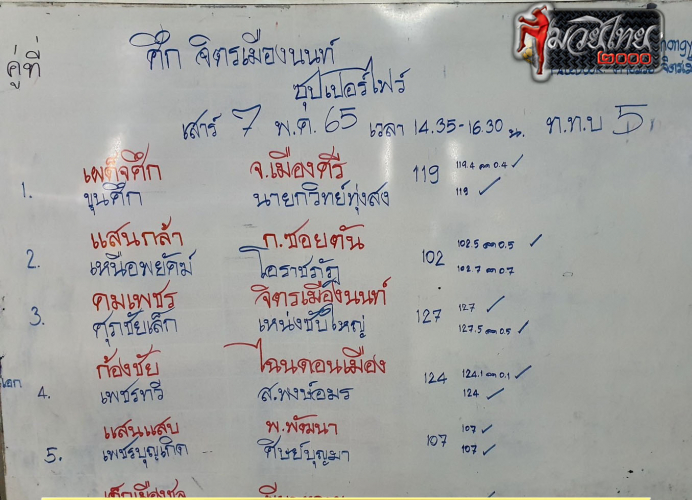 มวยไทย
๒๐๐๐
คู่ที่ ศึก จิตรเมืองนนท์
ซุปเปอร์ไฟว์
เสาร์ 7 พ.ค. 65 เวลา 14.35-16.30 น. ท.ท.บ 5
1. เผด็จศึก จ.เมืองศรี 119 119.4 ลด 0.4 ✓
ขุนศึก นายกวิทย์ทุ่งสง 119 ✓
2. แสนกล้า ก.ซอยตัน 102 102.5 ลด 0.5 ✓
เหนือพยัคฆ์ ไอราชภัฏ 102.7 ลด 0.7
3. คมเพชร จิตรเมืองนนท์ 127 127 ✓
ศุภชัยเล็ก เหน่งซับใหญ่ 127.5 ลด 0.5 ✓
4. ก้องชัย ไฉนดอนเมือง 124 124.1 ลด 0.1 ✓
เพชรทวี ส.พงษ์อมร 124 ✓
5. แสนแสบ พ.พัฒนา 107 107 ✓
เพชรบุญเกิด ศิษย์บุญมา 107 ✓